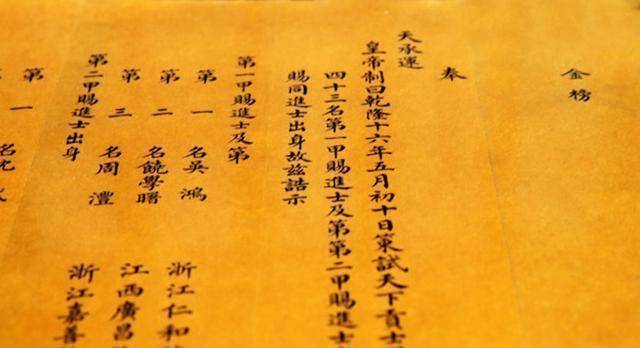 金榜
奉
天承運
皇帝制曰乾隆十六年五月初十日策試天下貢士
四十三名第一甲賜進士及第第二甲賜進士
賜同進士出身故茲誥示
第一甲賜進士及第
第一名吳鴻 浙江仁和
第二名饒學曙 江西廣昌
第三名周灃 浙江嘉善
第二甲賜進士出身
第一名沈